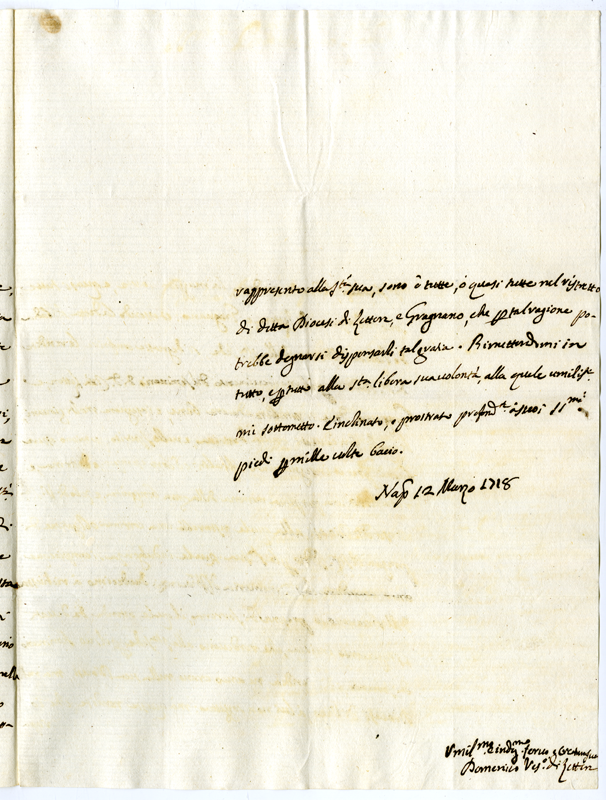 rappresento alla S.tà sua, sono ò tutte, ò quasi tutte nel ristretto
di detta Diocesi di Lettere, e Gragnano, che per tal ragione po-
trebbe degnarsi dispensarli tal grazia. Rimettendomi in
tutto, e per tutto alla S.tà libera sua volontà, alla quale umilist.e
mi sottometto. E inclinato, e prostrato profond.te à suoi SS.mi
piedi per mille volte bacio.
Nap. 12 Marzo 1718
Umil.mo et indeg.mo servo
Domenico Vesc.o di Lettere